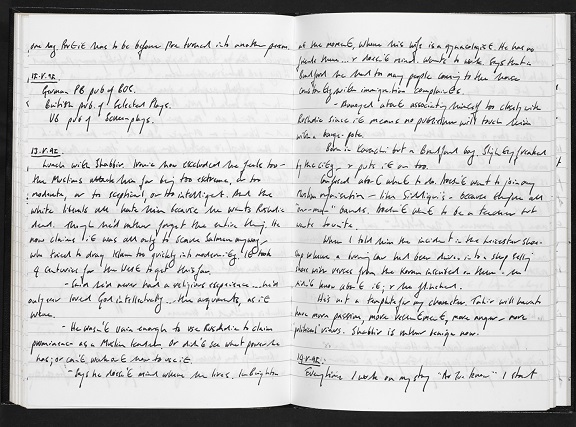 one day. But it has to be before I've turned into another person.
12.V.92.
German PB pub of BOS.
British pub. of Selected Plays.
US pub of Screenplays.
13.V.92.
Lunch with Shabbir. Ironic how excluded he feels too -
the Muslims attack him for being too extreme, or too
moderate, or too sceptical, or too intelligent. And the
white liberals all hate him because he wants Rushdie
dead. Though he'd rather forget the entire thing. He
now claims it was all only to scare Salman anyway,
who tried to drag Islam too quickly into modernity. It took
centuries for the West to get this far.
- Said he'd never had a religious experience... he's
only ever loved God intellectually... the arguments, as it
were.
- He wasn't vain enough to use Rushdie to claim
prominence as a Muslim leader. Or didn't see what power he
has; or can't work out how to use it.
- Says he doesn't mind where he lives. In Brighton
at the moment, where his wife is a gynaecologist. He has no
friends there... & doesn't mind. Wants to write. Says that in
Bradford he had too many people coming to the house
constantly with immigration complaints.
- Annoyed about associating himself too closely with
Rushdie since it means no publisher will touch him
with a barge-pole.
Born in Karachi but a Bradford boy. Slightly freaked
by the city, & puts it on too.
Confused about what to do. Doesn't want to join any
Muslim organisation - like Siddiqui's - because they're all
" bands. Doesn't want to be a teacher but
wants to write.
When I told him the incident in the Leicester shoe-
shop where a burning car had been driven into a shop selling
shoes with verses from the Koran inscribed on them - he
didn't know about it; & he flinched.
He's not a template for my character. Tahir will have to
have more passion, more vehemence, more anger - more
political views. Shabbir is rather benign now.
14.V.92.
Everytime I work on my story I start